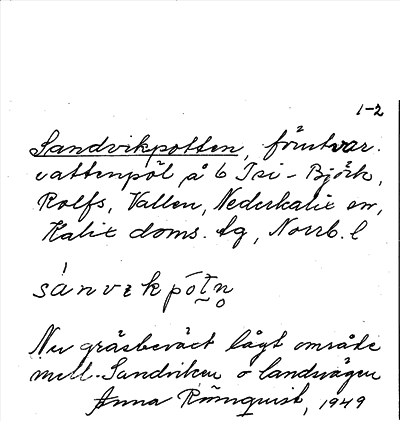 1-2
Sandvikpotten, förutvar.
vattenpöl å 6 Isi - Björk,
Rolfs, Vallen, Nederkalix sn,
Kalix doms. tg, Norrb. l
sánvɪkpòtn̥
Nu gräsbeväxt lågt område
mell. Sandviken o landsvägen
Anna Rönnquist, 1949